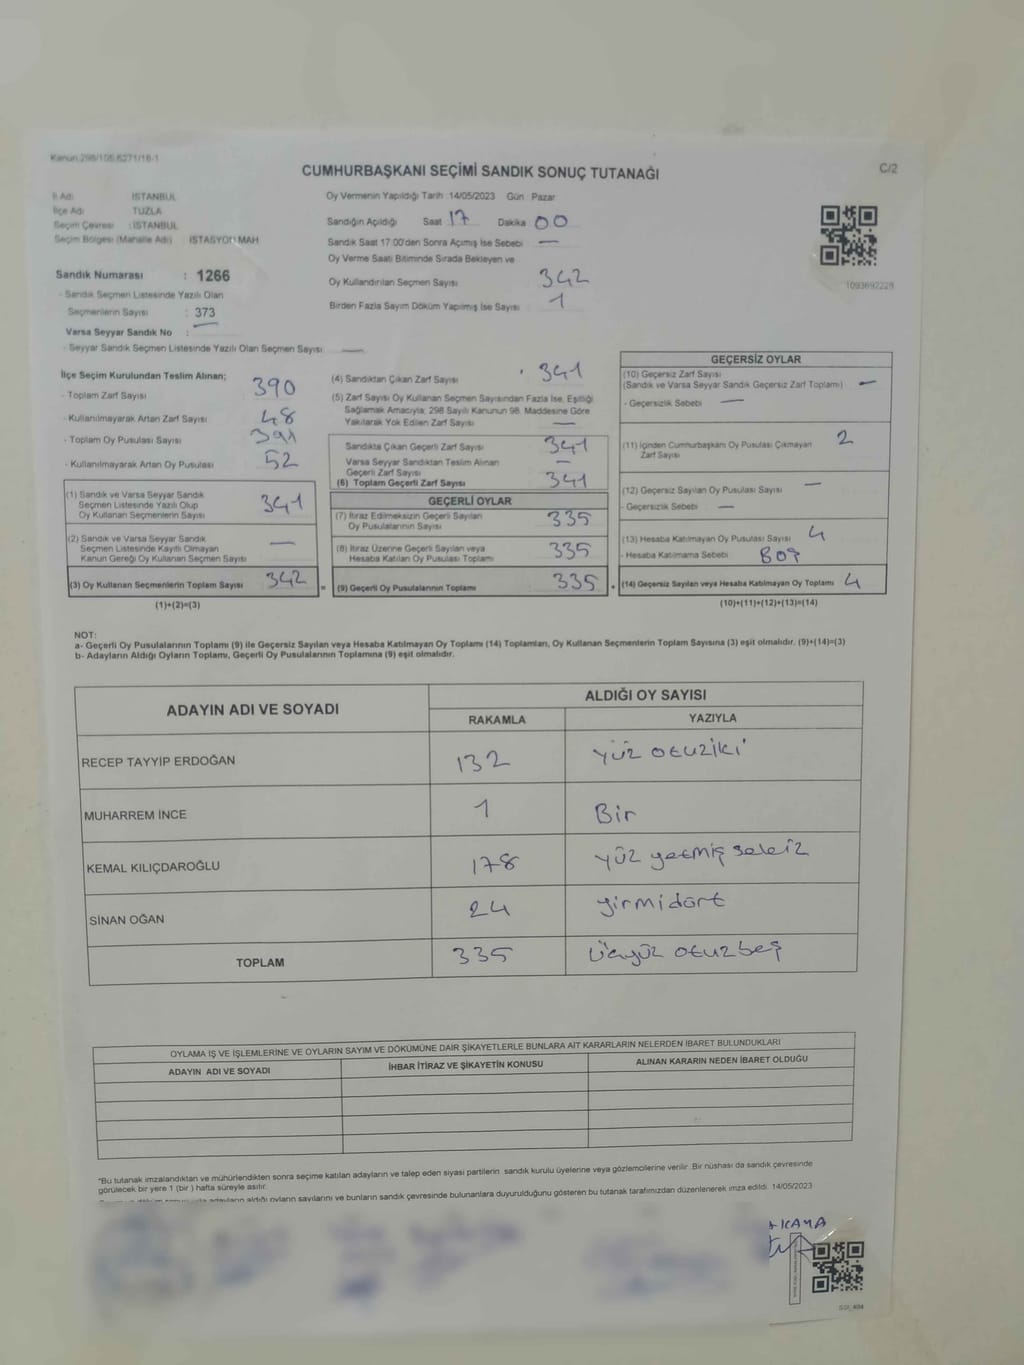 Kanun 298/105.6271/16-1
CUMHURBAŞKANI SEÇİMİ SANDIK SONUÇ TUTANAĞI
C/2
İl Adı : İSTANBUL
İlçe Adı : TUZLA
Seçim Çevresi : İSTANBUL
Seçim Bölgesi (Mahalle Adı) : İSTASYON MAH
Sandık Numarası : 1266
- Sandık Seçmen Listesinde Yazılı Olan
Seçmenlerin Sayısı : 373
Varsa Seyyar Sandık No : —
- Seyyar Sandık Seçmen Listesinde Yazılı Olan Seçmen Sayısı : —
Oy Vermenin Yapıldığı Tarih : 14/05/2023 Gün : Pazar
Sandığın Açıldığı Saat : 17 Dakika : 00
Sandık Saat 17.00'den Sonra Açımış İse Sebebi —
Oy Verme Saati Bitiminde Sırada Bekleyen ve
Oy Kullandırılan Seçmen Sayısı 342
Birden Fazla Sayım Döküm Yapılmış İse Sayısı 1
1093692228
İlçe Seçim Kurulundan Teslim Alınan;
- Toplam Zarf Sayısı 390
- Kullanılmayarak Artan Zarf Sayısı 48
- Toplam Oy Pusulası Sayısı 391
- Kullanılmayarak Artan Oy Pusulası 52
(1) Sandık ve Varsa Seyyar Sandık
Seçmen Listesinde Yazılı Olup
Oy Kullanan Seçmenlerin Sayısı 341
(2) Sandık ve Varsa Seyyar Sandık
Seçmen Listesinde Kayıtlı Olmayan
Kanun Gereği Oy Kullanan Seçmen Sayısı —
(3) Oy Kullanan Seçmenlerin Toplam Sayısı 342
(1)+(2)=(3)
(4) Sandıktan Çıkan Zarf Sayısı 341
(5) Zarf Sayısı Oy Kullanan Seçmen Sayısından Fazla İse, Eşitliği
Sağlamak Amacıyla, 298 Sayılı Kanunun 98. Maddesine Göre
Yakılarak Yok Edilen Zarf Sayısı —
Sandıkta Çıkan Geçerli Zarf Sayısı 341
Varsa Seyyar Sandıktan Teslim Alınan
Geçerli Zarf Sayısı —
(6) Toplam Geçerli Zarf Sayısı 341
GEÇERLİ OYLAR
(7) İtiraz Edilmeksizin Geçerli Sayılan
Oy Pusulalarının Sayısı 335
(8) İtiraz Üzerine Geçerli Sayılan veya
Hesaba Katılan Oy Pusulası Toplamı 335
= (9) Geçerli Oy Pusulalarının Toplamı 335
GEÇERSİZ OYLAR
(10) Geçersiz Zarf Sayısı
(Sandık ve Varsa Seyyar Sandık Geçersiz Zarf Toplamı) —
- Geçersizlik Sebebi —
(11) İçinden Cumhurbaşkanı Oy Pusulası Çıkmayan
Zarf Sayısı 2
(12) Geçersiz Sayılan Oy Pusulası Sayısı —
- Geçersizlik Sebebi —
(13) Hesaba Katılmayan Oy Pusulası Sayısı 4
- Hesaba Katılmama Sebebi BOŞ
+ (14) Geçersiz Sayılan veya Hesaba Katılmayan Oy Toplamı 4
(10)+(11)+(12)+(13)=(14)
NOT:
a- Geçerli Oy Pusulalarının Toplamı (9) ile Geçersiz Sayılan veya Hesaba Katılmayan Oy Toplamı (14) Toplamları, Oy Kullanan Seçmenlerin Toplam Sayısına (3) eşit olmalıdır. (9)+(14)=(3)
b- Adayların Aldığı Oyların Toplamı, Geçerli Oy Pusulalarının Toplamına (9) eşit olmalıdır.
ADAYIN ADI VE SOYADI
ALDIĞI OY SAYISI
RAKAMLA YAZIYLA
RECEP TAYYİP ERDOĞAN 132 yüz otuziki
MUHARREM İNCE 1 Bir
KEMAL KILIÇDAROĞLU 178 yüz yetmiş sekiz
SİNAN OĞAN 24 yirmidört
TOPLAM 335 Üçyüz otuzbeş
OYLAMA İŞ VE İŞLEMLERİNE VE OYLARIN SAYIM VE DÖKÜMÜNE DAİR ŞİKAYETLERLE BUNLARA AİT KARARLARIN NELERDEN İBARET BULUNDUKLARI
ADAYIN ADI VE SOYADI İHBAR İTİRAZ VE ŞİKAYETİN KONUSU ALINAN KARARIN NEDEN İBARET OLDUĞU
*Bu tutanak imzalandıktan ve mühürlendikten sonra seçime katılan adayların ve talep eden siyasi partilerin sandık kurulu üyelerine veya gözlemcilerine verilir. Bir nüshası da sandık çevresinde
görülecek bir yere 1 (bir) hafta süreyle asılır.
adayların aldığı oyların sayılarını ve bunların sandık çevresinde bulunanlara duyurulduğunu gösteren bu tutanak tarafımızdan düzenlenerek imza edildi. 14/05/2023